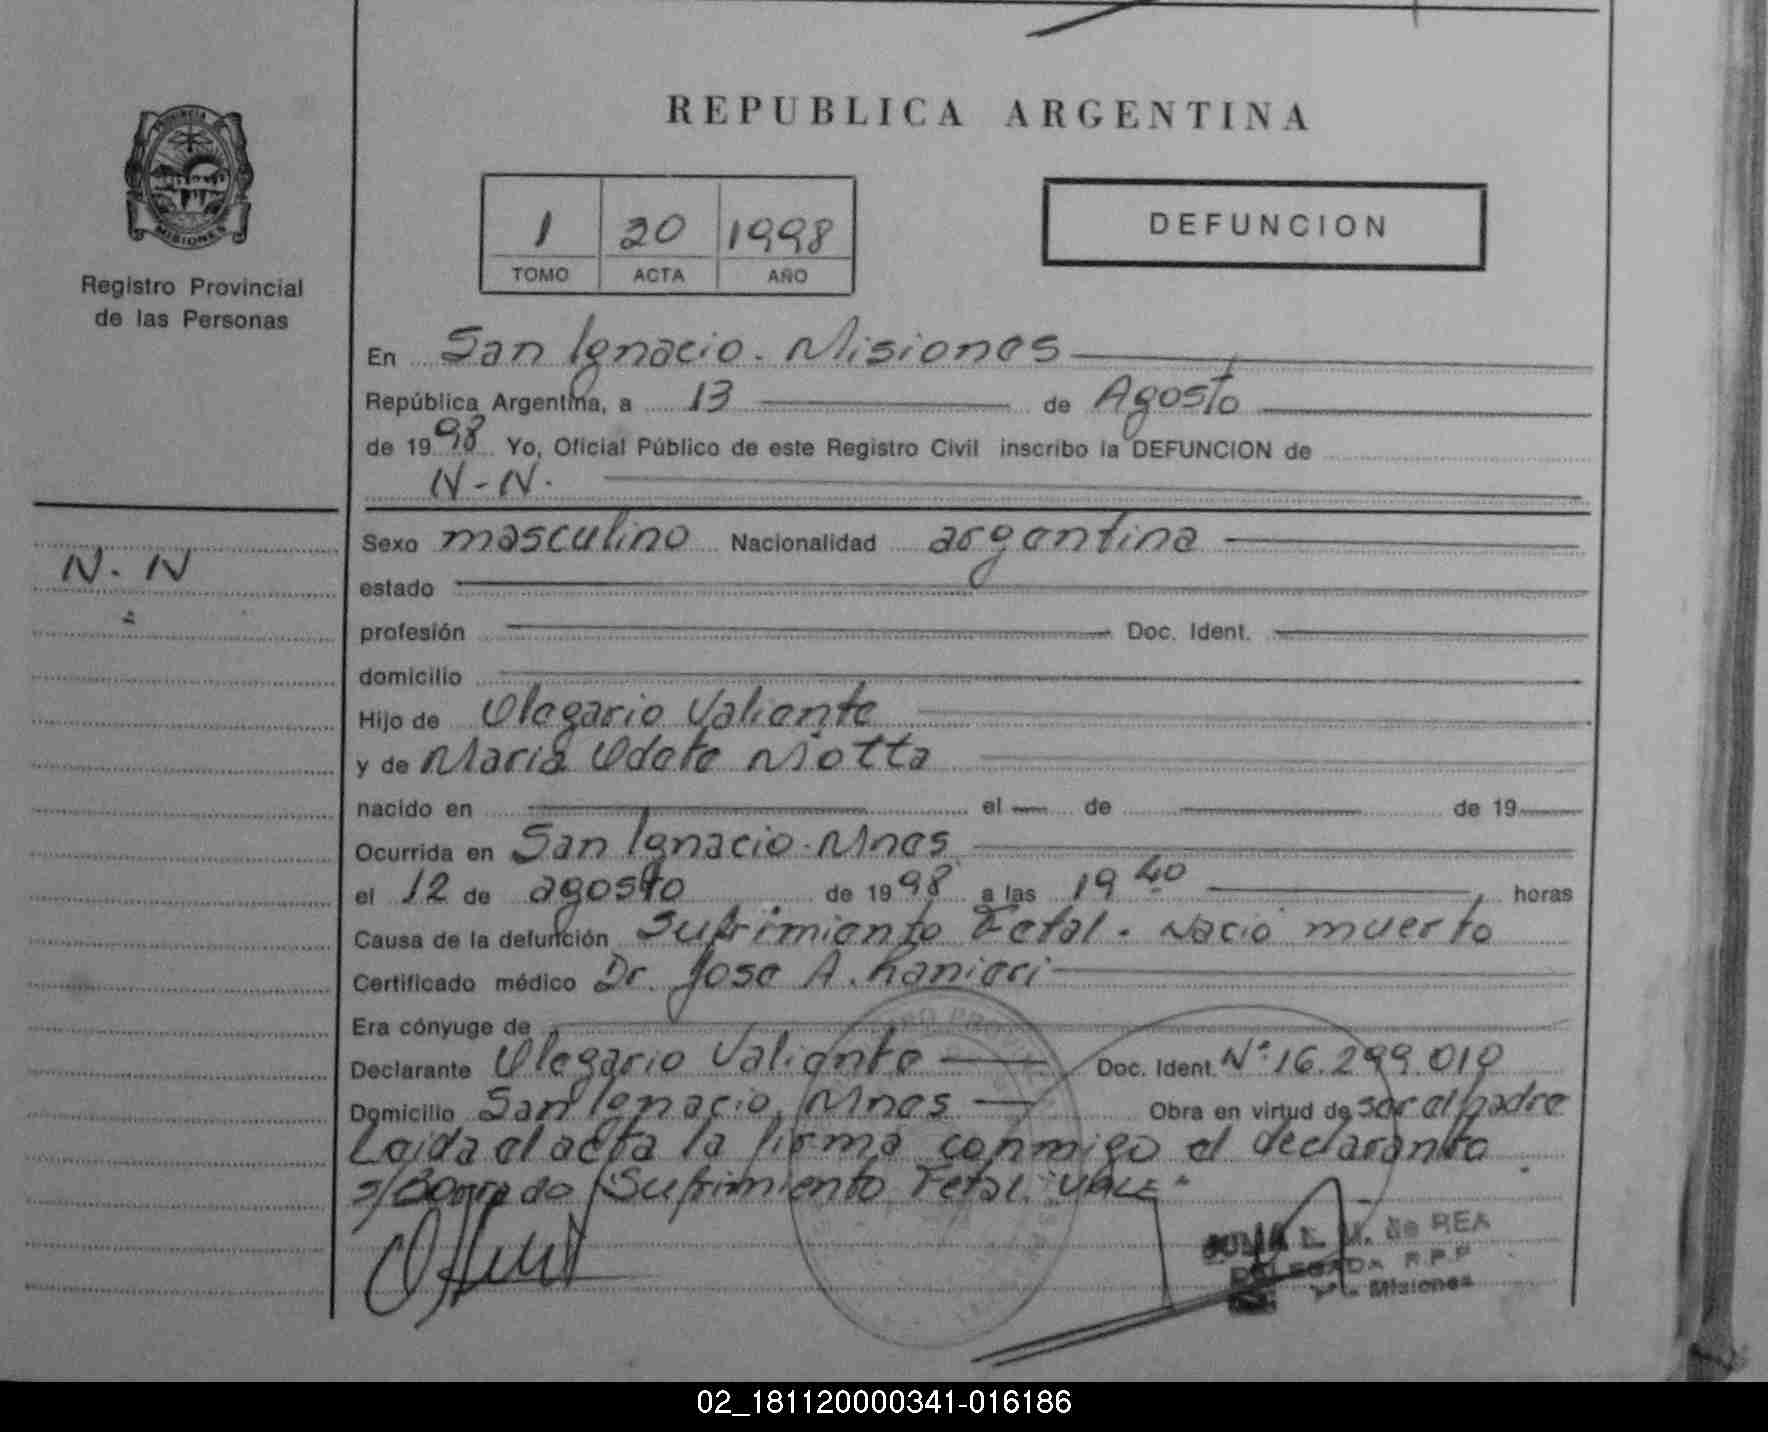 PROVINCIA DE
MISIONES
Registro Provincial
de las Personas
N. N
REPUBLICA ARGENTINA
1 20 1998
TOMO ACTA AÑO
DEFUNCION
En San Ignacio. Misiones
República Argentina, a 13 de Agosto
de 1998 Yo, Oficial Público de este Registro Civil inscribo la DEFUNCION de
N-N.
Sexo masculino Nacionalidad argentina
estado
profesión Doc. Ident.
domicilio
Hijo de Olegario Valiente
y de Maria Odete Motta
nacido en el de de 19
Ocurrida en San Ignacio. Mnes
el 12 de agosto de 1998 a las 19 40 horas
Causa de la defunción Sufrimiento Fetal. Nació muerto
Certificado médico Dr. Jose A. Ranieri
Era cónyuge de
Declarante Olegario Valiente Doc. Ident. Nº 16.299.010
Domicilio San Ignacio, Mnes Obra en virtud de ser el padre
Leida el acta la firma conmigo el declarante
s/Borrado "Sufrimiento Fetal. VALE"
L. M. de REA
DELEGADA R.P.P
Misiones
02_181120000341-016186